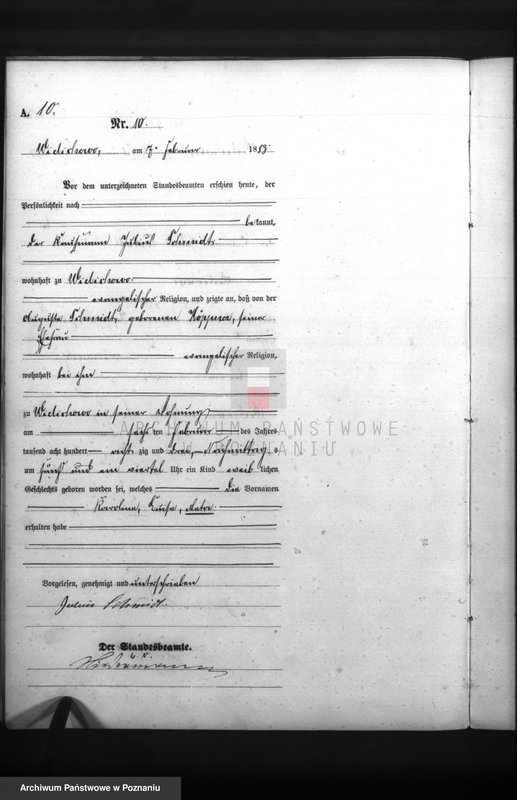 A. 10.
Nr. 10.
am 7. Februar 1883
Vor dem unterzeichneten Standesbeamten erschien heute, der
Persönlichkeit nach
bekannt,
der Kaufmann Julius Schmidt
wohnhaft zu
evangelischer Religion, und zeigte an, daß von der
Auguste Schmidt, geborenen Höppner, seiner
Ehefrau
evangelischer Religion,
wohnhaft bei ihm
zu in seiner Wohnung
am sechsten Februar des Jahres
tausend acht hundert achtzig und drei, Nachmittags
um fünf und ein viertel Uhr ein Kind weiblichen
Geschlechts geboren worden sei, welches die Vornamen
Karoline, Luise,
erhalten habe
Vorgelesen, genehmigt und unterschrieben
Julius Schmidt.
Der Standesbeamte.
ARCHIWUM PAŃSTWOWE
W POZNANIU
Archiwum Państwowe w Poznaniu